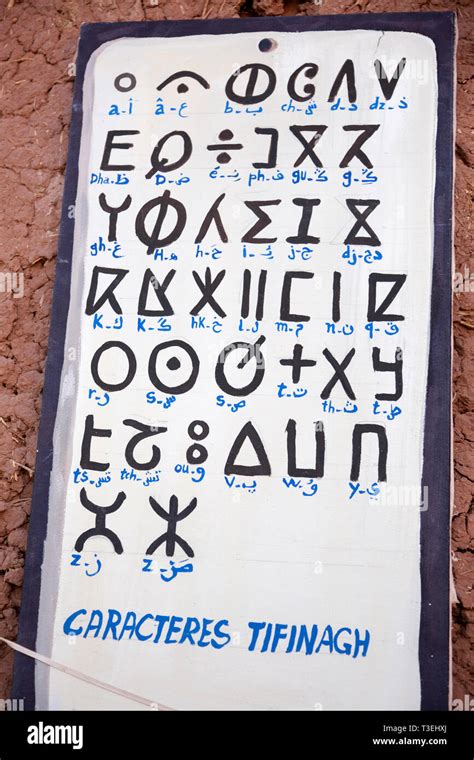 ⴰ ⵀ ⵛ ⴷ ⴸ
a_أ â_ع b_ب ch_ش d_د dz_ذ
ⴹ ⵁ ÷ ⴳ
Dha_ظ D_ض ph_ف gu_گ g_گ
ⵖ ⵀ ⵃ ⵉ ⵊ
gh_غ H_ه h_ح i_ j_ج dj_دج
ⴽ ⵅ ⵍ ⵎ ⵏ ⵇ
K_ك K_ك hK_خ l_ل m_م n_ن q_ق
ⵔ ⵙ ⵚ ⵜ ⵝ
r_ر s_س s_ص t_ت th_ث t_ط
ⵠ ⵡ
ts_تس tch_تش ou_و v_پ w_و y_ي
ⵣ ⵥ
z_ز z_
CARACTERES TIFINAGH
alamy
Image ID: T3EHXJ
www.alamy.com